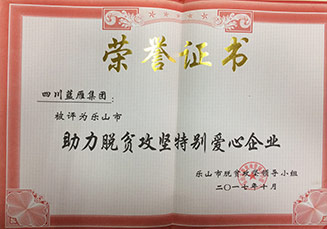 荣誉证书
四川蓝雁集团：
被评为乐山市
助力脱贫攻坚特别爱心企业
乐山市脱贫攻坚领导小组
二〇一七年十月